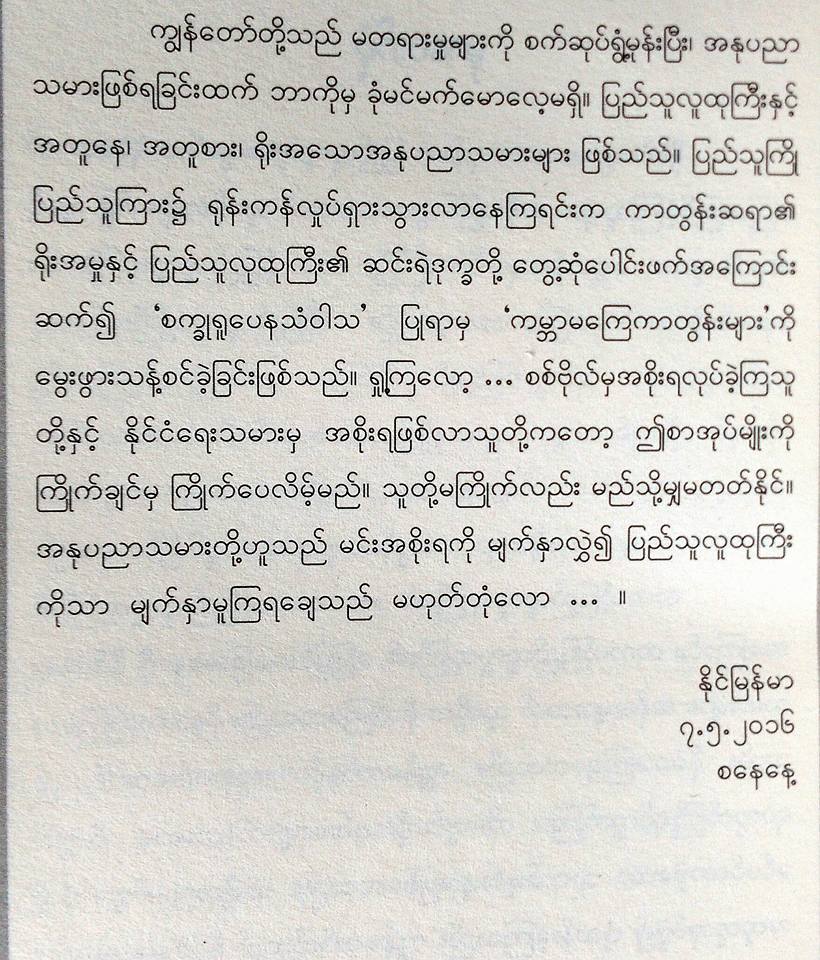 ကျွန်တော်တို့သည် မတရားမှုများကို စက်ဆုပ်ရွံ့မုန်းပြီး၊ အနုပညာ
သမားဖြစ်ရခြင်းထက် ဘာကိုမှ ခုံမင်မက်မောလေ့မရှိ။ ပြည်သူလူထုကြီးနှင့်
အတူနေ၊ အတူစား၊ ရိုးအသောအနုပညာသမားများ ဖြစ်သည်။ ပြည်သူကြို
ပြည်သူကြား၌ ရုန်းကန်လှုပ်ရှားသွားလာနေကြရင်းက ကာတွန်းဆရာ၏
ရိုးအမှုနှင့် ပြည်သူလုထုကြီး၏ ဆင်းရဲဒုက္ခတို့ တွေ့ဆုံပေါင်းဖက်အကြောင်း
ဆက်၍ ‘စက္ခုရူပေနသံဝါသ’ ပြုရာမှ ‘ကမ္ဘာမကြေကာတွန်းများ’ကို
မွေးဖွားသန့်စင်ခဲ့ခြင်းဖြစ်သည်။ ရှု့ကြလော့ ... စစ်ဗိုလ်မှအစိုးရလုပ်ခဲ့ကြသူ
တို့နှင့် နိုင်ငံရေးသမားမှ အစိုးရဖြစ်လာသူတို့ကတော့ ဤစာအုပ်မျိုးကို
ကြိုက်ချင်မှ ကြိုက်ပေလိမ့်မည်။ သူတို့မကြိုက်လည်း မည်သို့မျှမတတ်နိုင်။
အနုပညာသမားတို့ဟူသည် မင်းအစိုးရကို မျက်နှာလွှဲ၍ ပြည်သူလူထုကြီး
ကိုသာ မျက်နှာမူကြရချေသည် မဟုတ်တုံလော ... ။
နိုင်မြန်မာ
၇.၅.၂၀၁၆
စနေနေ့